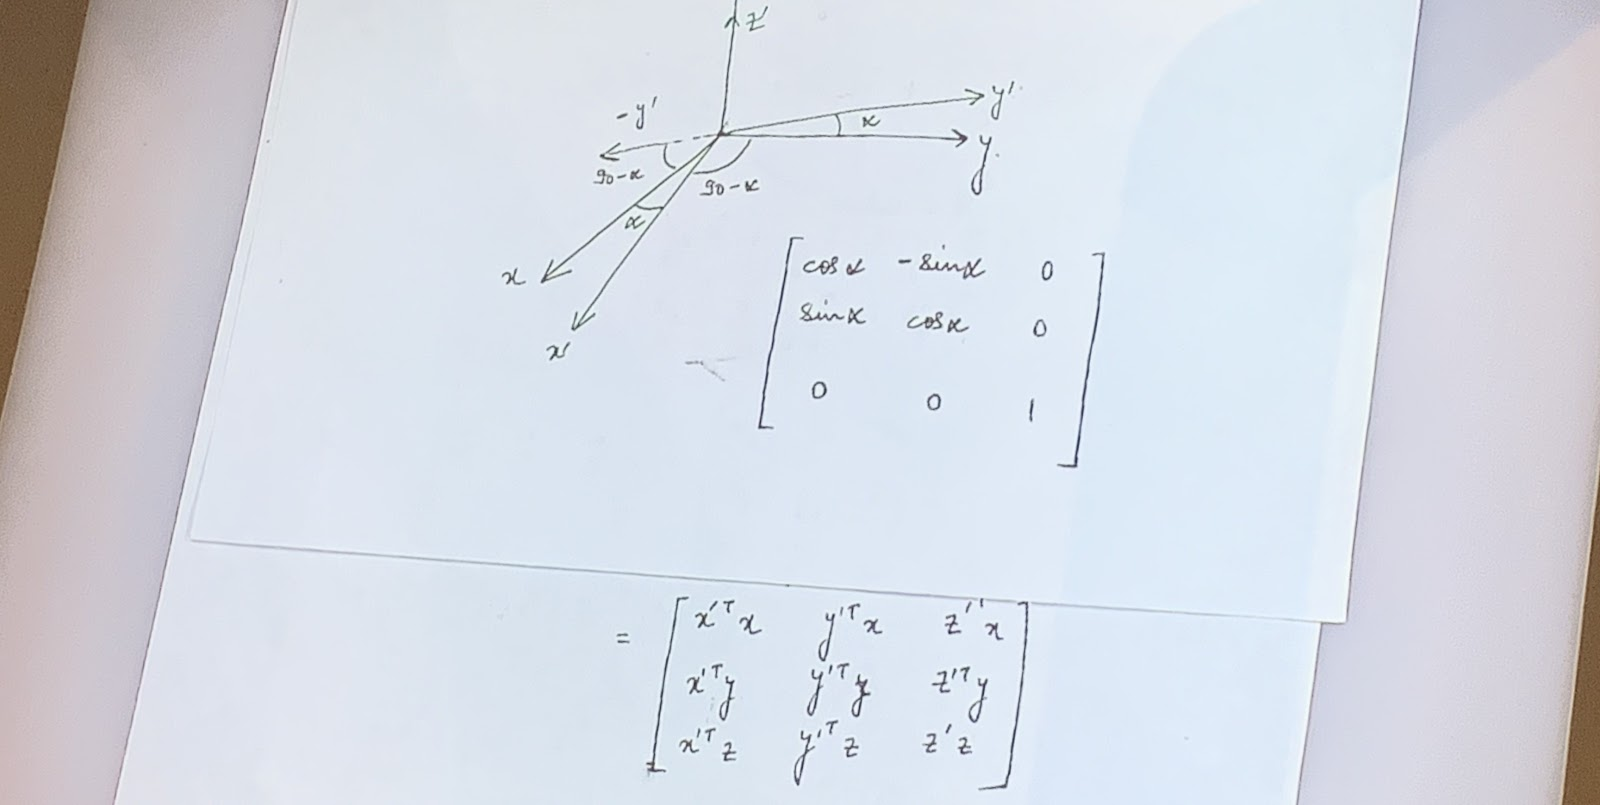 z'
y'
-y'
α
y.
90-α
90-α
α
x
x'
cosα -sinα 0
sinα cosα 0
0 0 1
= x'ᵀx y'ᵀx z''x
x'ᵀy y'ᵀy z'ᵀy
x'ᵀz y'ᵀz z'z